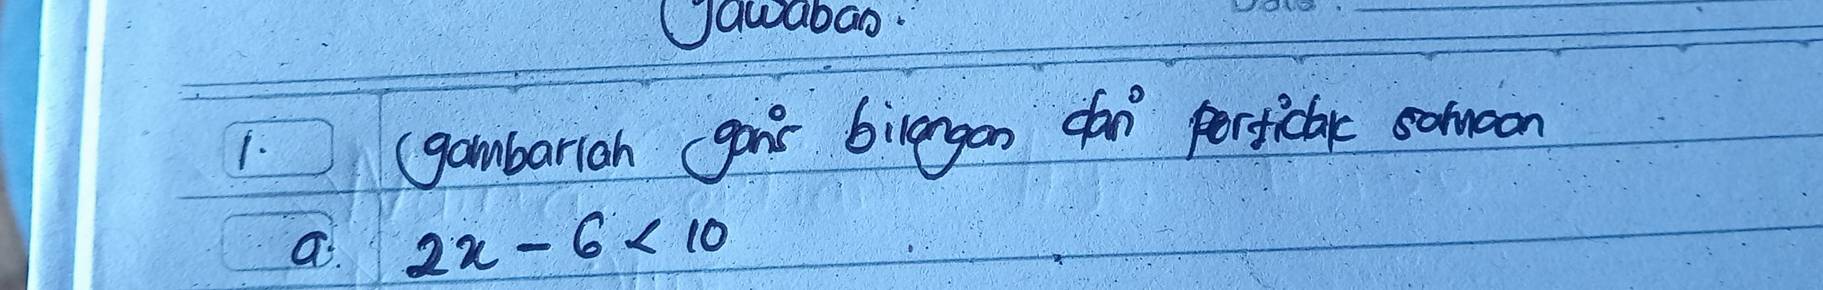 Jawaban.
1. Gambarlah garis bilangan dari pertidak samaan
a. 2x - 6 < 10